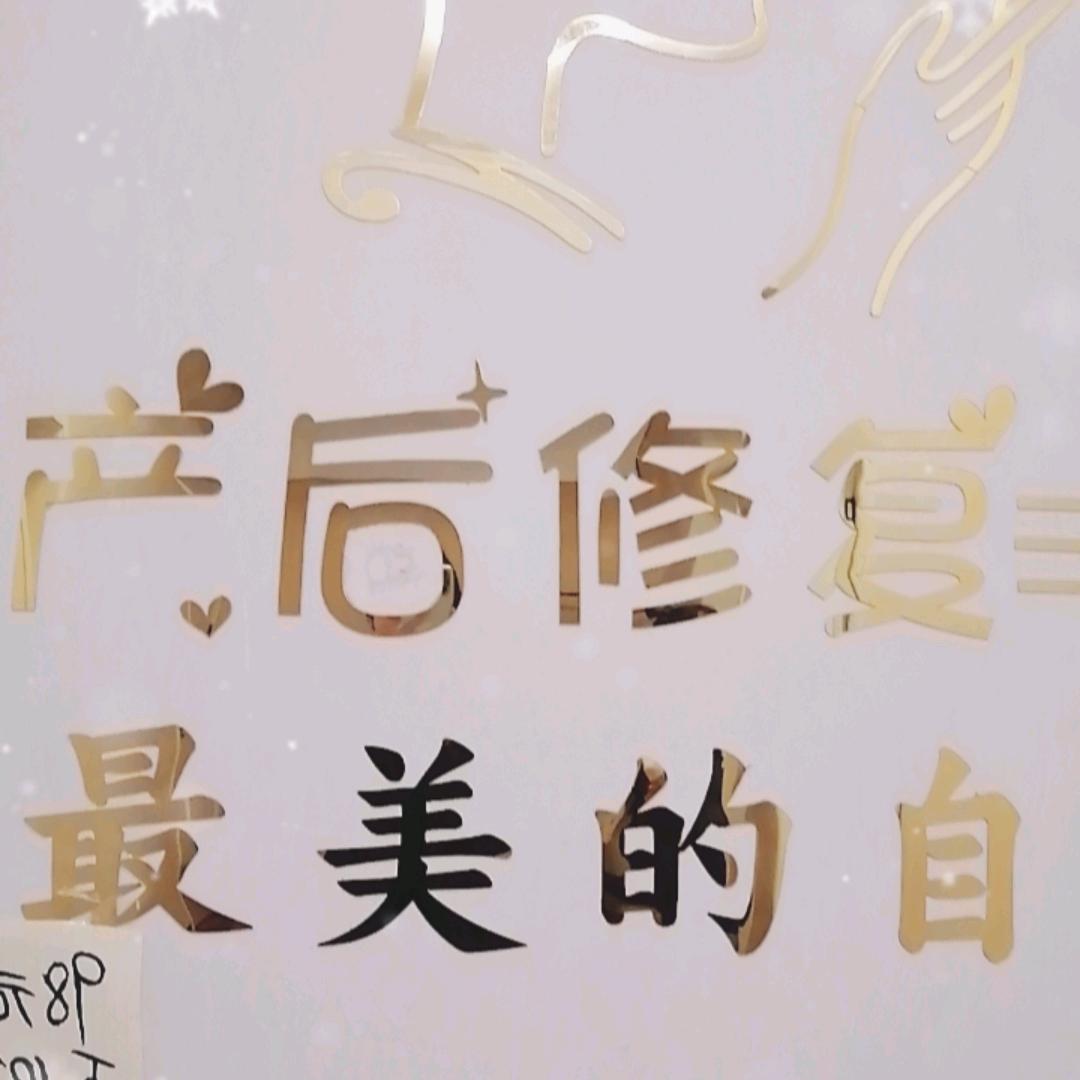 产后修复
最美的自
98元